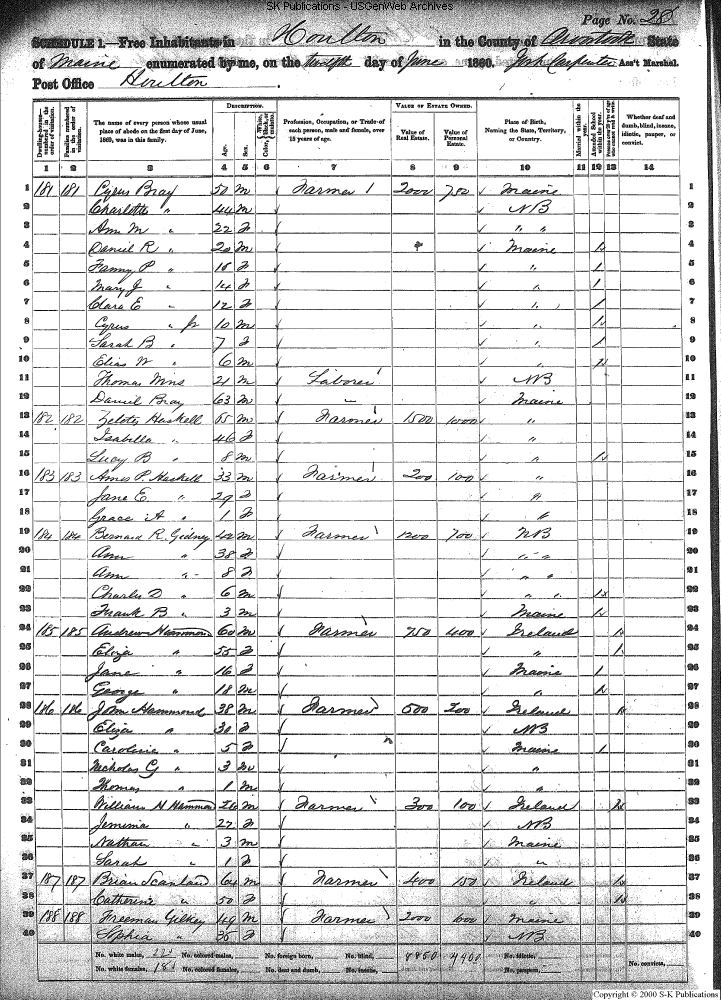 SK Publications - USGenWeb Archives
Page No. 28
SCHEDULE 1.—Free Inhabitants in Houlton in the County of Aroostook State
of Maine enumerated by me, on the twelfth day of June 1860. Carpenter Ass't Marshal.
Post Office Houlton
DESCRIPTION. VALUE OF ESTATE OWNED.
Dwelling-houses—numbered in the order of visitation. Families numbered in the order of visitation. The name of every person whose usual place of abode on the first day of June, 1860, was in this family. Age. Sex. Color, White, black, or mulatto. Profession, Occupation, or Trade of each person, male and female, over 15 years of age. Value of Real Estate. Value of Personal Estate. Place of Birth, Naming the State, Territory, or Country. Married within the year. Attended School within the year. Persons over 20 y'rs of age who cannot read & write. Whether deaf and dumb, blind, insane, idiotic, pauper, or convict.
1 2 3 4 5 6 7 8 9 10 11 12 13 14
1 181 181 Cyrus Bray 50 M Farmer 2000 Maine 1
2 Charlotte " 44 M NB 2
3 Ann M " 22 F " " 3
4 Daniel R " 20 M Maine 1 4
5 Fanny P " F " 1 5
6 Mary J " 14 F " 1 6
7 Clara E " 12 F " 1 7
8 Cyrus " Jr 10 M " 1 8
9 Sarah B " 7 F " 1 9
10 Elias W " 6 M " 1 10
11 Thomas 21 M Laborer NB 11
12 Daniel Bray 63 M " Maine 12
13 182 182 Haskell 65 M Farmer 1500 1000 " 13
14 Isabella " 46 F " 14
15 Lucy B " 8 M " 1 15
16 183 183 Amos P. Haskell 33 M Farmer 200 100 " 16
17 Jane E. " 29 F " 17
18 Grace A " 1 F " 18
19 184 184 Bernard R. Gidney 42 M Farmer 1200 700 NB 19
20 Ann " 38 F " " 20
21 Ann " 8 F " " 21
22 Charles D " 6 M " " 1 22
23 Frank B " 3 M Maine 1 23
24 185 185 Andrew Hammond 60 M Farmer 750 400 Ireland 1 24
25 Eliza " 55 F " 1 25
26 Jane " 16 F Maine 1 26
27 George " 18 M " 1 27
28 186 186 John Hammond 38 M Farmer 500 200 Ireland 1 28
29 Eliza " 30 F NB 29
30 Caroline " 5 F Maine 1 30
31 Nicholas G " 3 M " 31
32 Thomas " 1 M " 32
33 William H Hammond 26 M Farmer 300 100 Ireland 1 33
34 Jemima " 27 F NB 34
35 Nathan " 3 M Maine 35
36 Sarah " 1 F " 36
37 187 187 Brian Scanland 64 M Farmer 400 150 Ireland 1 37
38 Catherine " 50 F " 1 38
39 188 188 Freeman Gilkey 49 M Farmer 2000 600 Maine 39
40 Sophia " 35 F NB 40
No. white males, No. colored males, No. foreign born, No. blind, 4400 No. idiotic,
No. white females, No. colored females, No. deaf and dumb, No. insane, No. paupers, No. convicts,
Copyright © 2000 S-K Publications